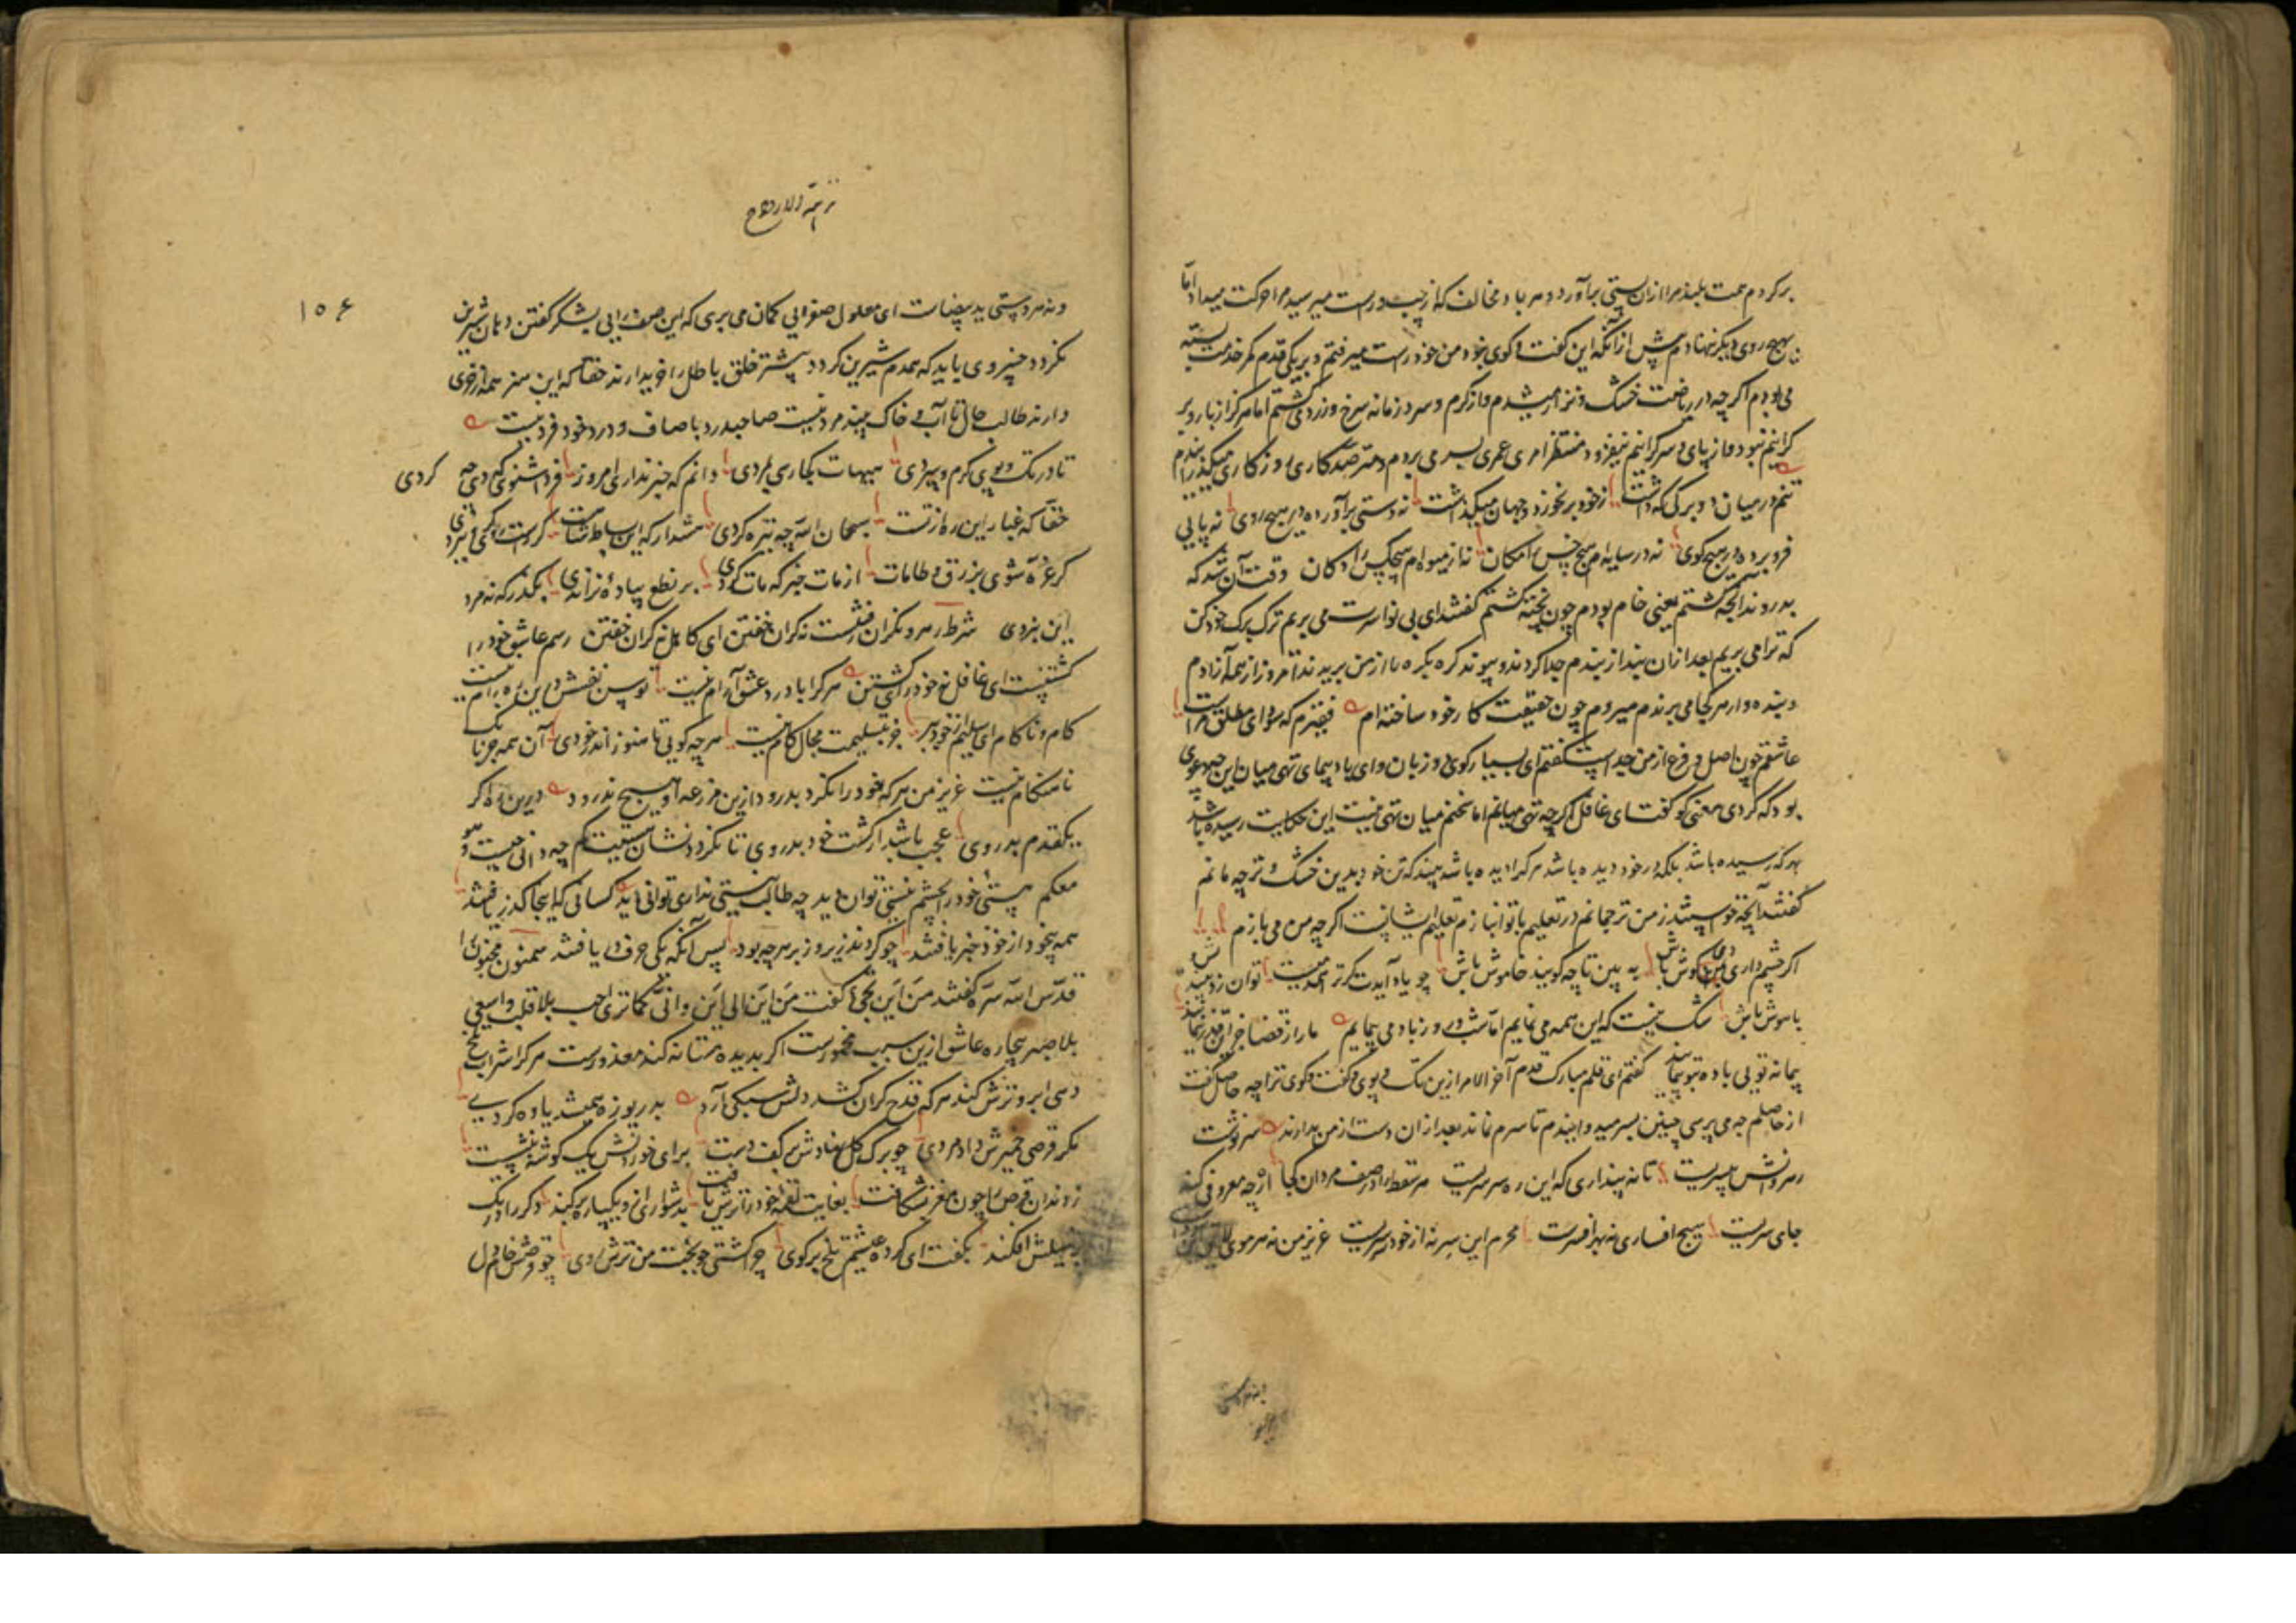 برکردم همت بلند مرا ازان پستی برآورد و هر باد مخالف که از چپ و راست میرسید مرا حرکت میداد اما
بهیچ روی دیگر ننهادم پیش ازانکه این گفت و گوی بخود من خود راست میرفتم و بریکی قدم کمر خدمت بسته
می بودم اکرچه در ریاضت خشک و نزار میشدم و از گرم و سرد زمانه سرخ و زرد می گشتم اما هرگز از بار و بر
گرانیم نبود و از پای و سر گرانیم نیفزود منتظر امری عمری بسر می بردم و مترصد کاری روزکاری میگذراندم
تنم در میان دو برگی که داشت زخود برنخورد و جهان میگذاشت نه دستی برآورده در هیچ روی نه پایی
فرو برده در هیچ کوی نه در سایه ام هیچ خس را مکان نه از میوه ام هیچکس را دکان وقت آن شد که
بدروند آنچه کشتم یعنی خام بودم چون پخته گشتم گفتند ای بی نوا سرت می بریم ترک برگ خود کن
که ترا می بریم بعد ازان بند از بندم جدا کردند و پیوند گره بگره ما از من بریدند تا امروز از همه آزادم
و بنده وار هر کجا می برندم میروم چون حقیقت کار خود ساخته ام فقیرم که سودای مطلق مراست
عاشقم چون اصل و فرع از من جداست گفتم ای بسیار گوی دو زبان و ای باد پیمای تهی میان این چه دعوی
بود که کردی معنی کو گفت ای غافل اکرچه تهی میانم اما سخنم میان تهی نیست این حکایت رسیده باشد
بهر که رسیده باشد بلکه در خود دیده باشد هر کرا دیده باشد بیند که تن خود بدین خشک و تر چه مانم
گفتند آنچه خواستند ز من ترجمانم در تعلیم با تو انبازم تعلیم ایشانست اکرچه من می بازم
اکر چشم داری همی گوش باش به بین تا چه گویند خاموش باش چو یاد آیدت کر ترا همتست توان زد
باهوش باش شک نیست که این همه می نمایم اما شب و روز باد می پیمایم ما را از قضا جز این قدر ننمایند
پیمانه تویی باده بتو پیمایند گفتم ای قلم مبارک قدم آخر الامر ازین تک و پوی و گفت و گوی ترا چه حاصل گفت
از حاصلم چه می پرسی چنین بسر میدوانیدم تا سرم نماند بعد ازان دست از من بدارند سرنوشت
رهروانش بسریست تا نه پنداری که این ره سرسریست هر سقط را در صف مردان کجا ازچه معروفی کند
جای سریست هیچ افساری نه بهر افسرست محرم این سر نه از خود سریست عزیز من نه هر موی
نزهة الارواح
۱۰۶
و نه هر دستی ید بیضاست ای معلول صفرایی گمان می بری که این صفرایی بشکر گفتن دهان شیرین
نگردد خسروی باید که همدم شیرین گردد بیشتر خلق باطل را خریدارند حقا که این سنز همه از خری
دارند طالب حال تا آب و خاک بیند مرد نیست صاحبدرد با صاف و درد خود فرد نیست
تا در تک و پوی گرم و سردی هیهات بجا ری بمردی دانم که خبر نداری امروز فردا شنوی که دی چه کردی
حقا که غبار این ره از تست سبحان الله چه تیره گردی هشدار که این بساط شاهست
کر غره شوی بزرق و طامات از مات خبر که مات گردی بر نطع پیادۀ نراندی بگذر که نه مرد
این نبردی شرط رهرو نگران رفتنست نه گران خفتن ای کاهل نه گران خفتن رسم عاشق خود را
کشتنیست ای غافل نه خود را کشتن هر کرا با درد عشق آرام نیست توسن نفسش درین ره رام نیست
کام و ناکام ای سلیم از خود ببر جز بتسلیمت مجال کام نیست هرچه گویی تا هنوز اندر خودی آن همه جز بانک
ناهنگام نیست عزیز من هر که خود را نگرد بدرود ازین مزرعه او هیچ ندرود درین ره اکر
یکقدم بدروی عجب باشد ار کشت خود بدروی تا نگردد نشان هستیت کم چه دانی چیست و هو
معکم هستی خود را بچشم نیستی توان دید چه طالب نیستی نداری توانی دید کسانی که اینجا گذر یافتند
همه بیخود از خود خبر یافتند چو کردند زیر و زبر هرچه بود پس آنکه یکی حرف دریافتند سمنون مجنون را
قدس الله سره گفتند من این تجئ گفت من این الی این و انی کما تری احب بلا قلب و اسعی
بلا صبر بیچاره عاشق ازین سبب مخمورست اکر بدیده مستانه کند معذورست هر کرا شراب تلخ
دهی ابرو ترش کند هر که قدح گران کشد دلش سبکی آرد بدریوزه میشد یاوه گردی
مکر قرصی خمیرش داد مردی چو برگ گل نهادش بر کف دست برای خوردنش یک گوشه بنشست
ز دندان قرص را چون مغز بشکافت بغایت لقمه خود را ترش یافت بدشواری ازو یکپاره برکند دگر را در یک
زنبیلش افکند بگفت ای کرده عیشم تلخ برگوی چرا گشتی چو بخت من ترش روی چو قرصش خام دل